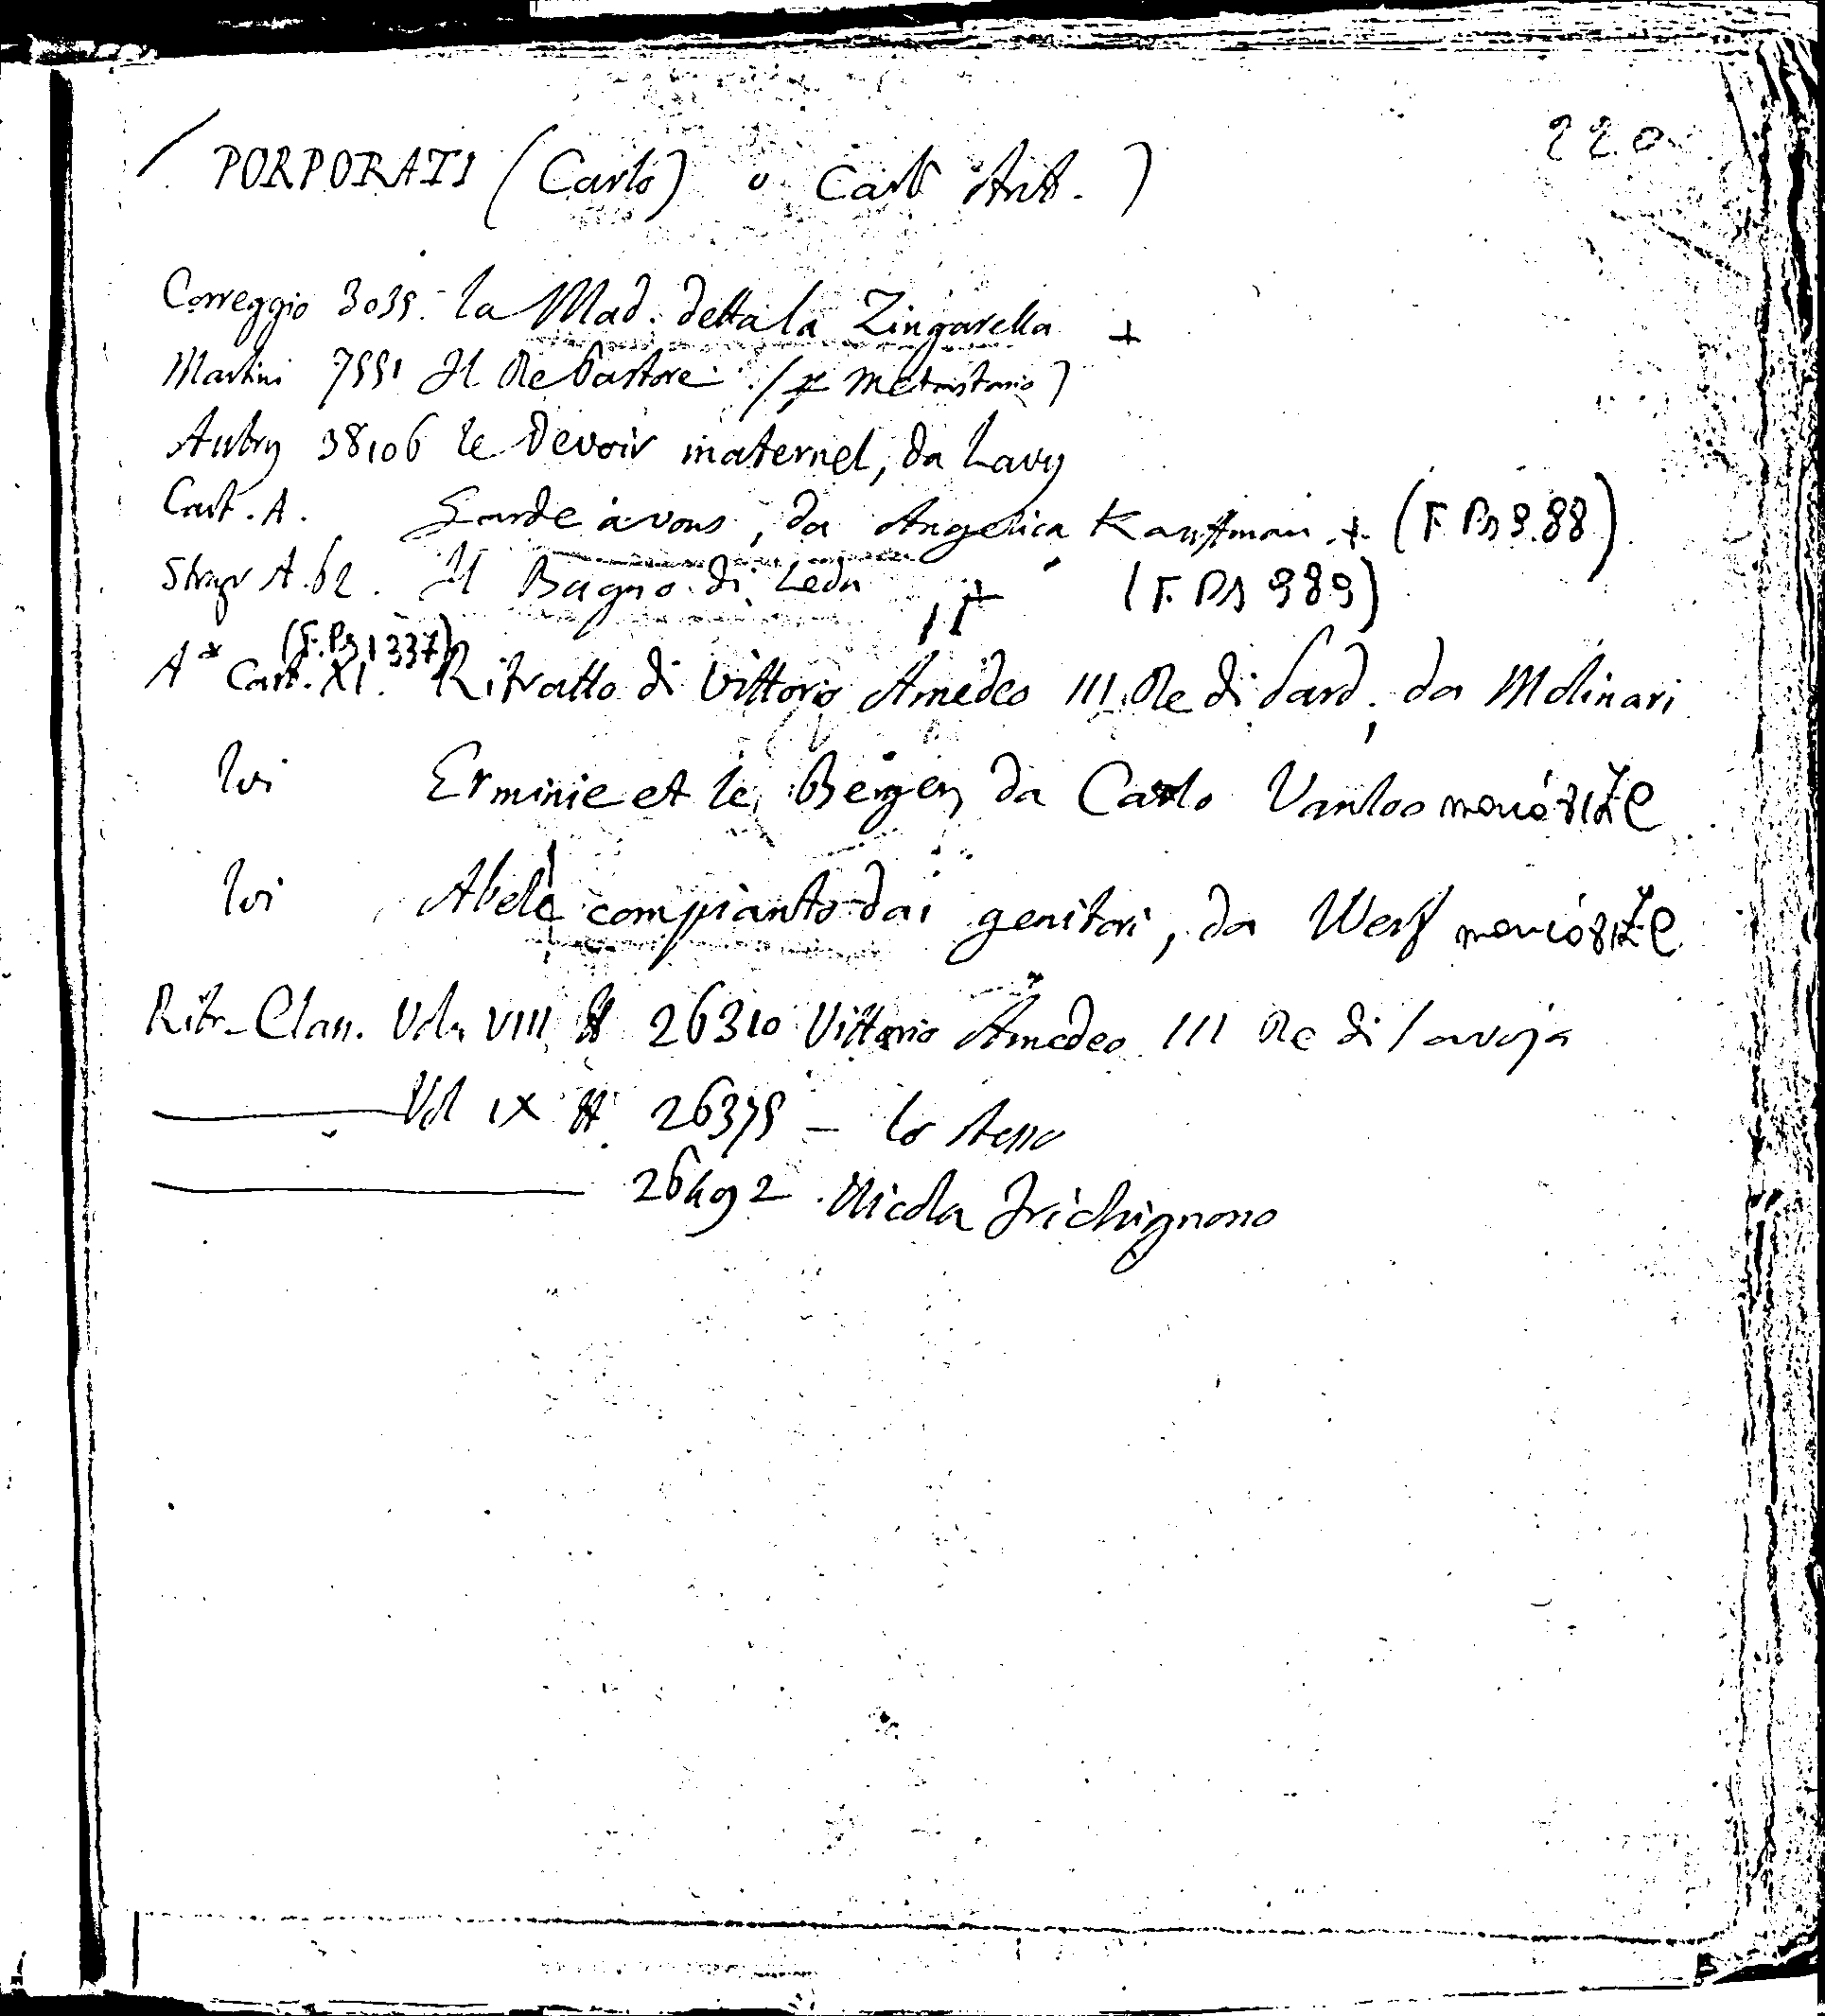 220
PORPORATI (Carlo) o Carlo Ant. )
Correggio 3035. la Mad. detta la Zingarella +
Martini 7551 Il Re Pastore (p Metastasio)
Aubry 38106 le Devoir maternel, da Lavy
Cart. A. Garde à vous, da Angelica Kauffman + (F. PS 988)
Strage A. 62. Il Bagno di Leda + (F. PS 989)
(F. PS 1337)
A* Cart. XI. Ritratto di Vittorio Amedeo III Re di Sard. da Molinari
Ivi Erminie et le Berger, da Carlo Vanloo
Ivi Abele compianto dai genitori, da Werf
Ritr. Class. Vol. VIII # 26310 Vittorio Amedeo III Re di Savoja
Vol IX # 26375 - lo stesso
26492 Nicola Frichignono